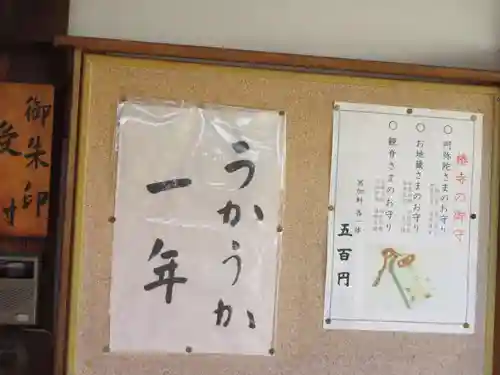 椿寺の御守
○ 阿弥陀さまのお守り
○ お地蔵さまのお守り
○ 観音さまのお守り
五百円
うかうか
一年
御朱印
受付